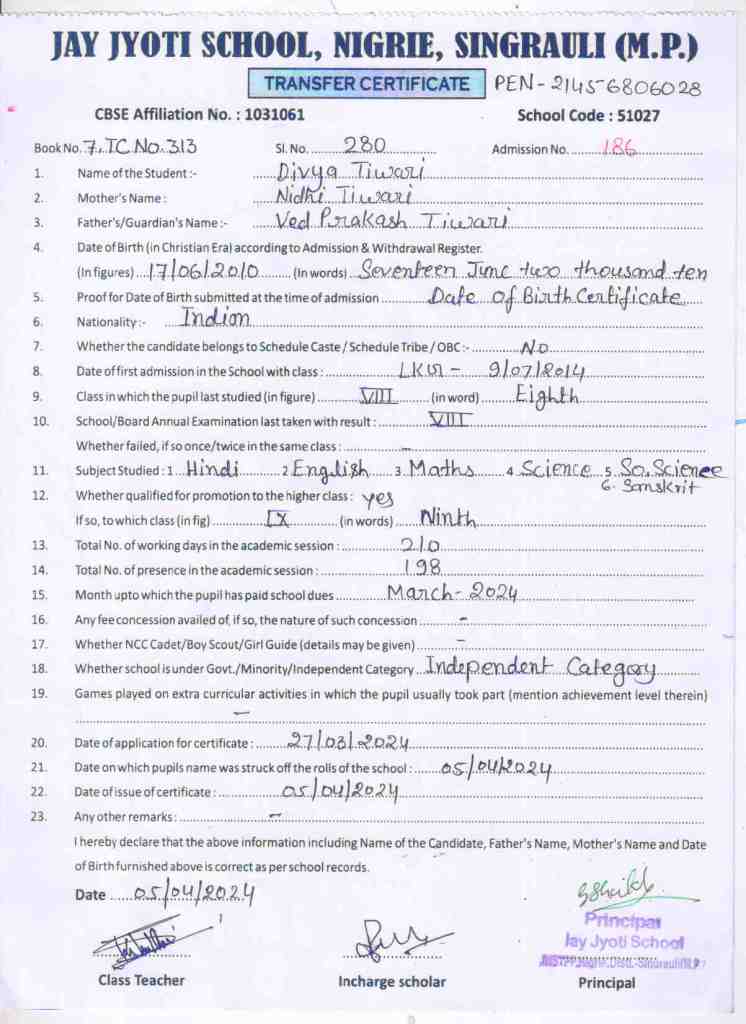 JAY JYOTI SCHOOL, NIGRIE, SINGRAULI (M.P.)
TRANSFER CERTIFICATE PEN - 21456806028
CBSE Affiliation No. : 1031061 School Code : 51027
Book No. 7, TC No. 313 Sl. No. 280 Admission No. 186
1. Name of the Student :- Divya Tiwari
2. Mother's Name : Nidhi Tiwari
3. Father's/Guardian's Name :- Ved Prakash Tiwari
4. Date of Birth (in Christian Era) according to Admission & Withdrawal Register.
(In figures) 17/06/2010 (In words) Seventeen June two thousand ten
5. Proof for Date of Birth submitted at the time of admission Date of Birth Certificate
6. Nationality :- Indian
7. Whether the candidate belongs to Schedule Caste / Schedule Tribe / OBC :- No
8. Date of first admission in the School with class : LKG - 9/07/2014
9. Class in which the pupil last studied (in figure) VIII (in word) Eighth
10. School/Board Annual Examination last taken with result : VIII
Whether failed, if so once/twice in the same class : -
11. Subject Studied : 1 Hindi 2 English 3 Maths 4 Science 5 So. Science
6. Sanskrit
12. Whether qualified for promotion to the higher class : yes
If so, to which class (in fig) IX (in words) Ninth
13. Total No. of working days in the academic session : 210
14. Total No. of presence in the academic session : 198
15. Month upto which the pupil has paid school dues March - 2024
16. Any fee concession availed of, if so, the nature of such concession -
17. Whether NCC Cadet/Boy Scout/Girl Guide (details may be given) -
18. Whether school is under Govt./Minority/Independent Category Independent Category
19. Games played on extra curricular activities in which the pupil usually took part (mention achievement level therein)
-
20. Date of application for certificate : 27/03/2024
21. Date on which pupils name was struck off the rolls of the school : 05/04/2024
22. Date of issue of certificate : 05/04/2024
23. Any other remarks : -
I hereby declare that the above information including Name of the Candidate, Father's Name, Mother's Name and Date
of Birth furnished above is correct as per school records.
Date 05/04/2024
Principal
Jay Jyoti School
Class Teacher Incharge scholar Principal